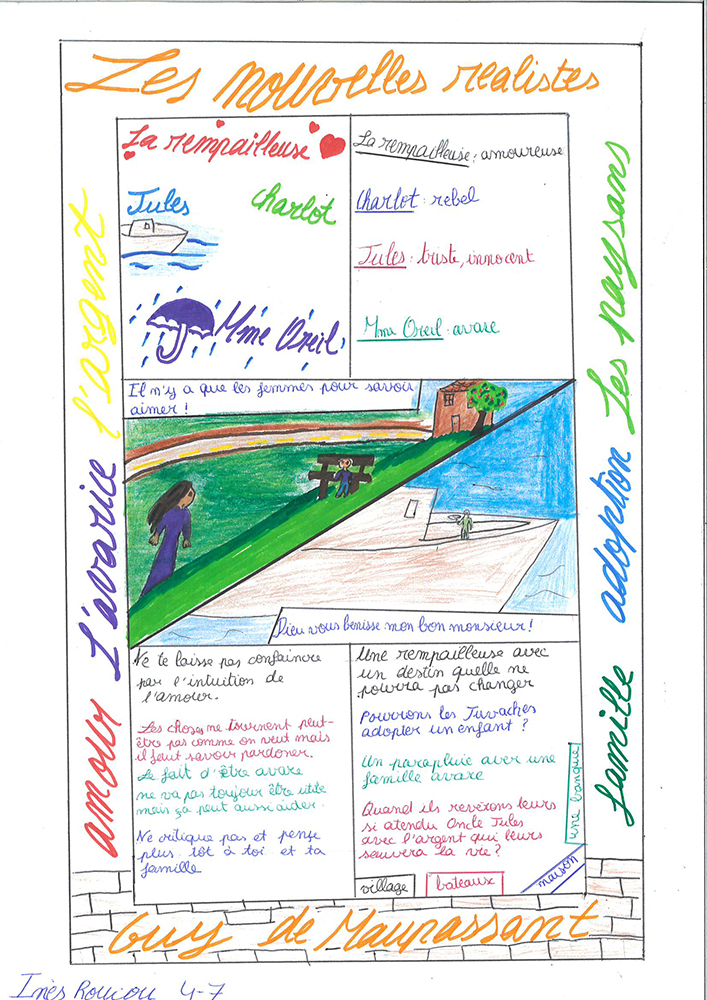 Les nouvelles realistes
La rempailleuse
Jules
Charlot
Mme Oreil
La rempailleuse : amoureuse
Charlot : rebel
Jules : triste, innocent
Mme Oreil : avare
amour L'avarice l'argent
Les paysans
adoption
famille
Il n'y a que les femmes pour savoir
aimer !
Dieu vous benisse mon bon monsieur !
Ne te laisse pas confaincre
par l'intuition de
l'amour.
Les choses ne tournent peut-
être pas comme on veut mais
il faut savoir pardoner.
Le fait d'être avare
ne va pas toujour être utile
mais ça peut aussi aider.
Ne critique pas et pense
plus tôt à toi et ta
famille
Une rempailleuse avec
un destin quelle ne
pourra pas changer
Pourrons les Tuvaches
adopter un enfant ?
Un parapluie avec une
famille avare
Quand ils reverons leurs
si atendu Oncle Jules
avec l'argent qui leurs
sauvera la vie ?
une banque
village
bateaux
maison
Guy de Maupassant
Inès 4-7